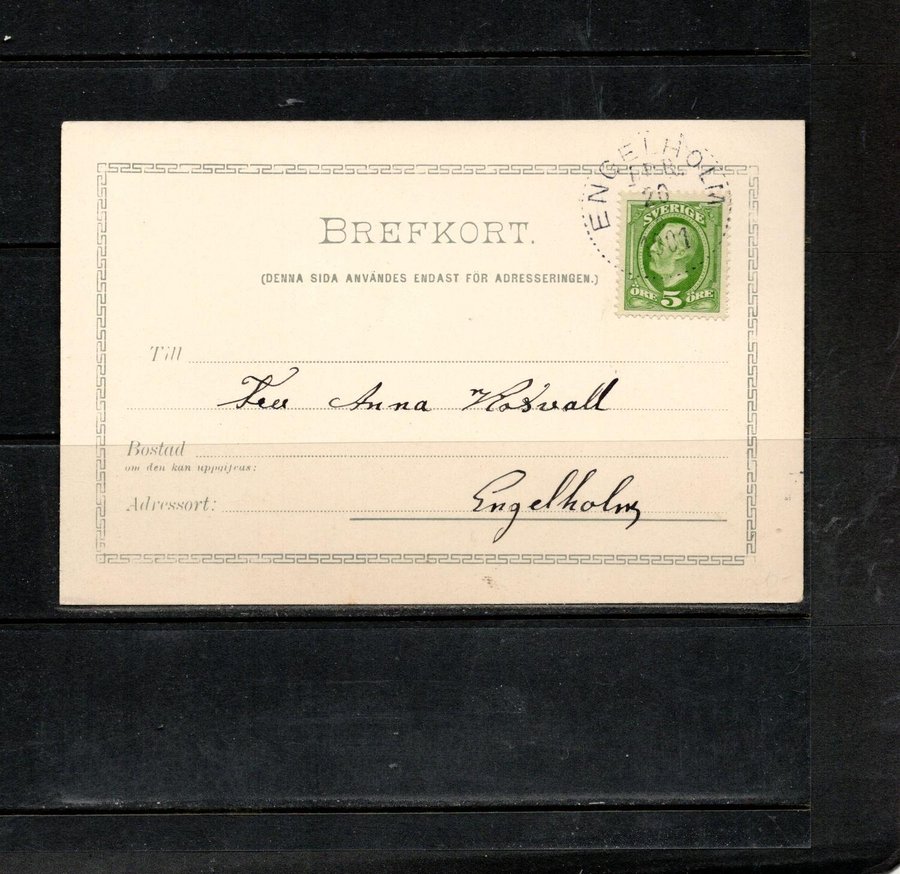 ENGELHOLM
20
1901
SVERIGE
ÖRE 5 ÖRE
BREFKORT.
(DENNA SIDA ANVÄNDES ENDAST FÖR ADRESSERINGEN.)
Till
Anna Rosvall
Bostad
om den kan uppgifvas:
Adressort:
Engelholm